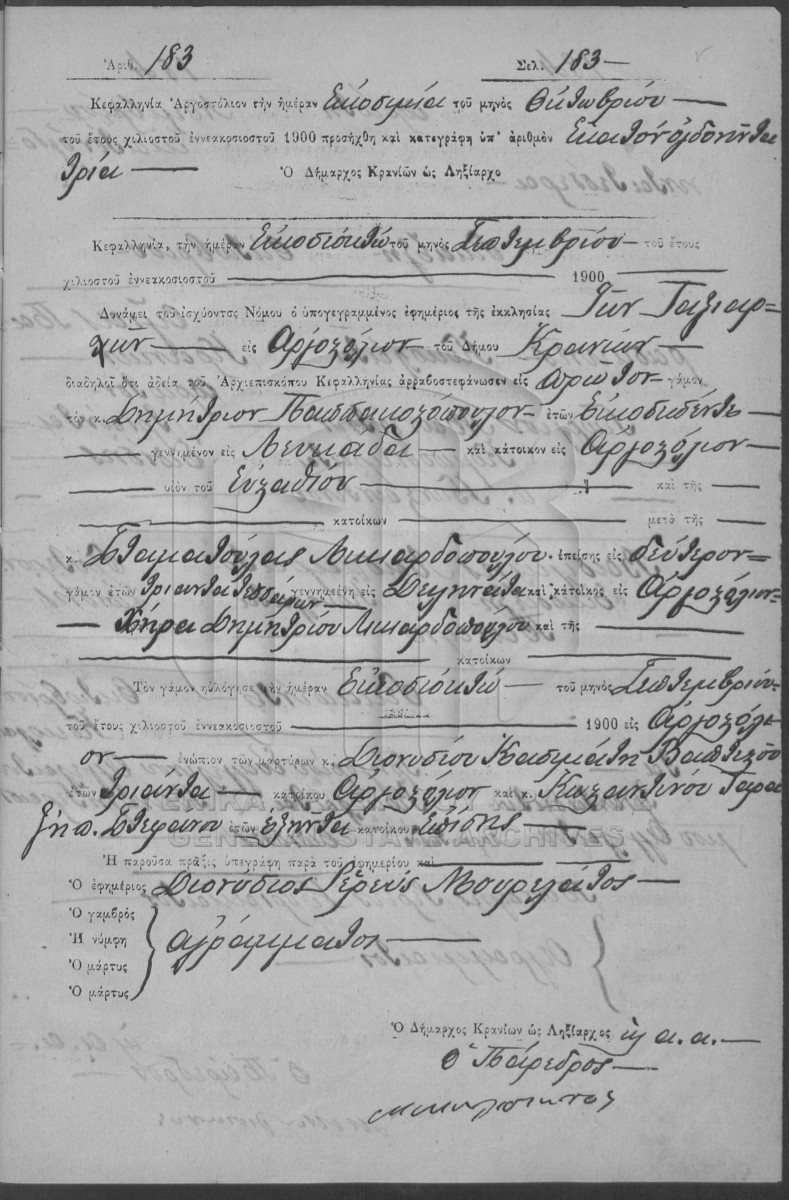 Ἀριθ. 183 Σελ. 183
Κεφαλληνία Ἀργοστόλιον τὴν ἡμέραν Εἰκοσιμία τοῦ μηνὸς Ὀκτωβρίου
τοῦ ἔτους χιλιοστοῦ ἐννεακοσιοστοῦ 1900 προσήχθη καὶ κατεγράφη ὑπ' ἀριθμὸν Ἑκατὸν ὀγδοήκοντα
τρία Ὁ Δήμαρχος Κρανίων ὡς Ληξίαρχο
Κεφαλληνία, τὴν ἡμέραν Εἰκοσιοκτώ τοῦ μηνὸς Σεπτεμβρίου τοῦ ἔτους
χιλιοστοῦ ἐννεακοσιοστοῦ 1900
Δυνάμει τοῦ ἰσχύοντος Νόμου ὁ ὑπογεγραμμένος ἐφημέριος τῆς ἐκκλησίας Τῶν Ταξιαρ=
χῶν εἰς Ἀργοστόλιον τοῦ Δήμου Κρανίων
διαδηλοῖ ὅτι ἀδείᾳ τοῦ Ἀρχιεπισκόπου Κεφαλληνίας ἀρραβοστεφάνωσεν εἰς πρῶτον γάμον
τὸν κ. Δημήτριον Παππακοστόπουλον ἐτῶν Εἰκοσιπέντε
γεννημένον εἰς Λευκάδα καὶ κάτοικον εἰς Ἀργοστόλιον
υἱὸν τοῦ Εὐσταθίου καὶ τῆς
κατοίκων μετὰ τῆς
κ. Σταματούλας Λικιαρδοπούλου ἐπίσης εἰς δεύτερον=
γάμον ἐτῶν τριάντα τεσσάρων γεννημένη εἰς Δεληνάτα καὶ κάτοικος εἰς Ἀργοστόλιον
Χήρα Δημητρίου Λικιαρδοπούλου καὶ τῆς
κατοίκων
Τὸν γάμον ηὐλόγησε τὴν ἡμέραν Εἰκοσιοκτώ τοῦ μηνὸς Σεπτεμβρίου
τοῦ ἔτους χιλιοστοῦ ἐννεακοσιοστοῦ 1900 εἰς Ἀργοστόλι
ον ἐνώπιον τῶν μαρτύρων κ. Διονυσίου Κασιμάτη
ἐτῶν τριάντα κατοίκου Ἀργοστόλιον καὶ κ. Κωσταντίνου
Στεφάνου ἐτῶν ἑξῆντα κατοίκου Ἐπίσης
Ἡ παροῦσα πρᾶξις ὑπεγράφη παρὰ τοῦ ἐφημερίου καὶ
Ὁ ἐφημέριος Διονύσιος Ἱερεύς Μουρελάτος
Ὁ γαμβρὸς
Ἡ νύμφη ἀγράμματοι
Ὁ μάρτυς
Ὁ μάρτυς
Ὁ Δήμαρχος Κρανίων ὡς Ληξίαρχος κ. α. α.
Ὁ Πάρεδρος
GENERAL STATE ARCHIVES